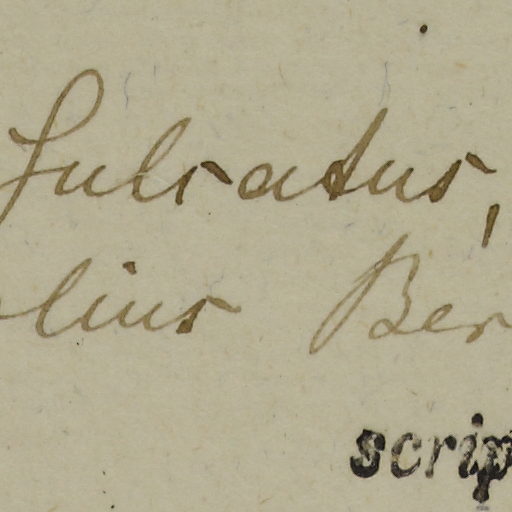 fulcatus,
lius Ber
scrip